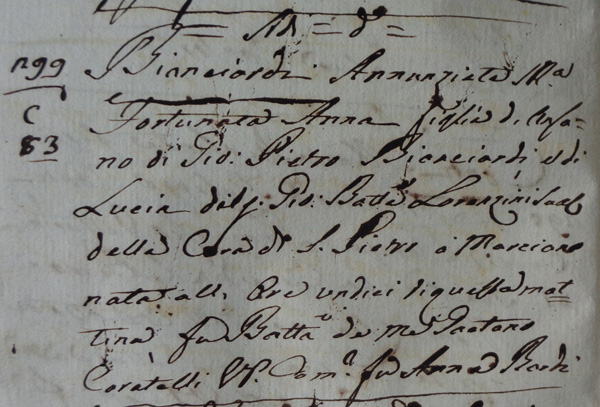 = Ad = d.° =
n99 Bianciardi Annunziata M.a
C e Fortunata Anna figlia di
83 no di Gio: Pietro Bianciardi e di
Lucia del q. Gio: Batta Lorenzini
della Cura di S. Pietro a Marciano
nata all, Ore undici di questa mat
tina fu Batta.a da me Gaetano
Coratelli VP. Com.e fu Anna Bardi